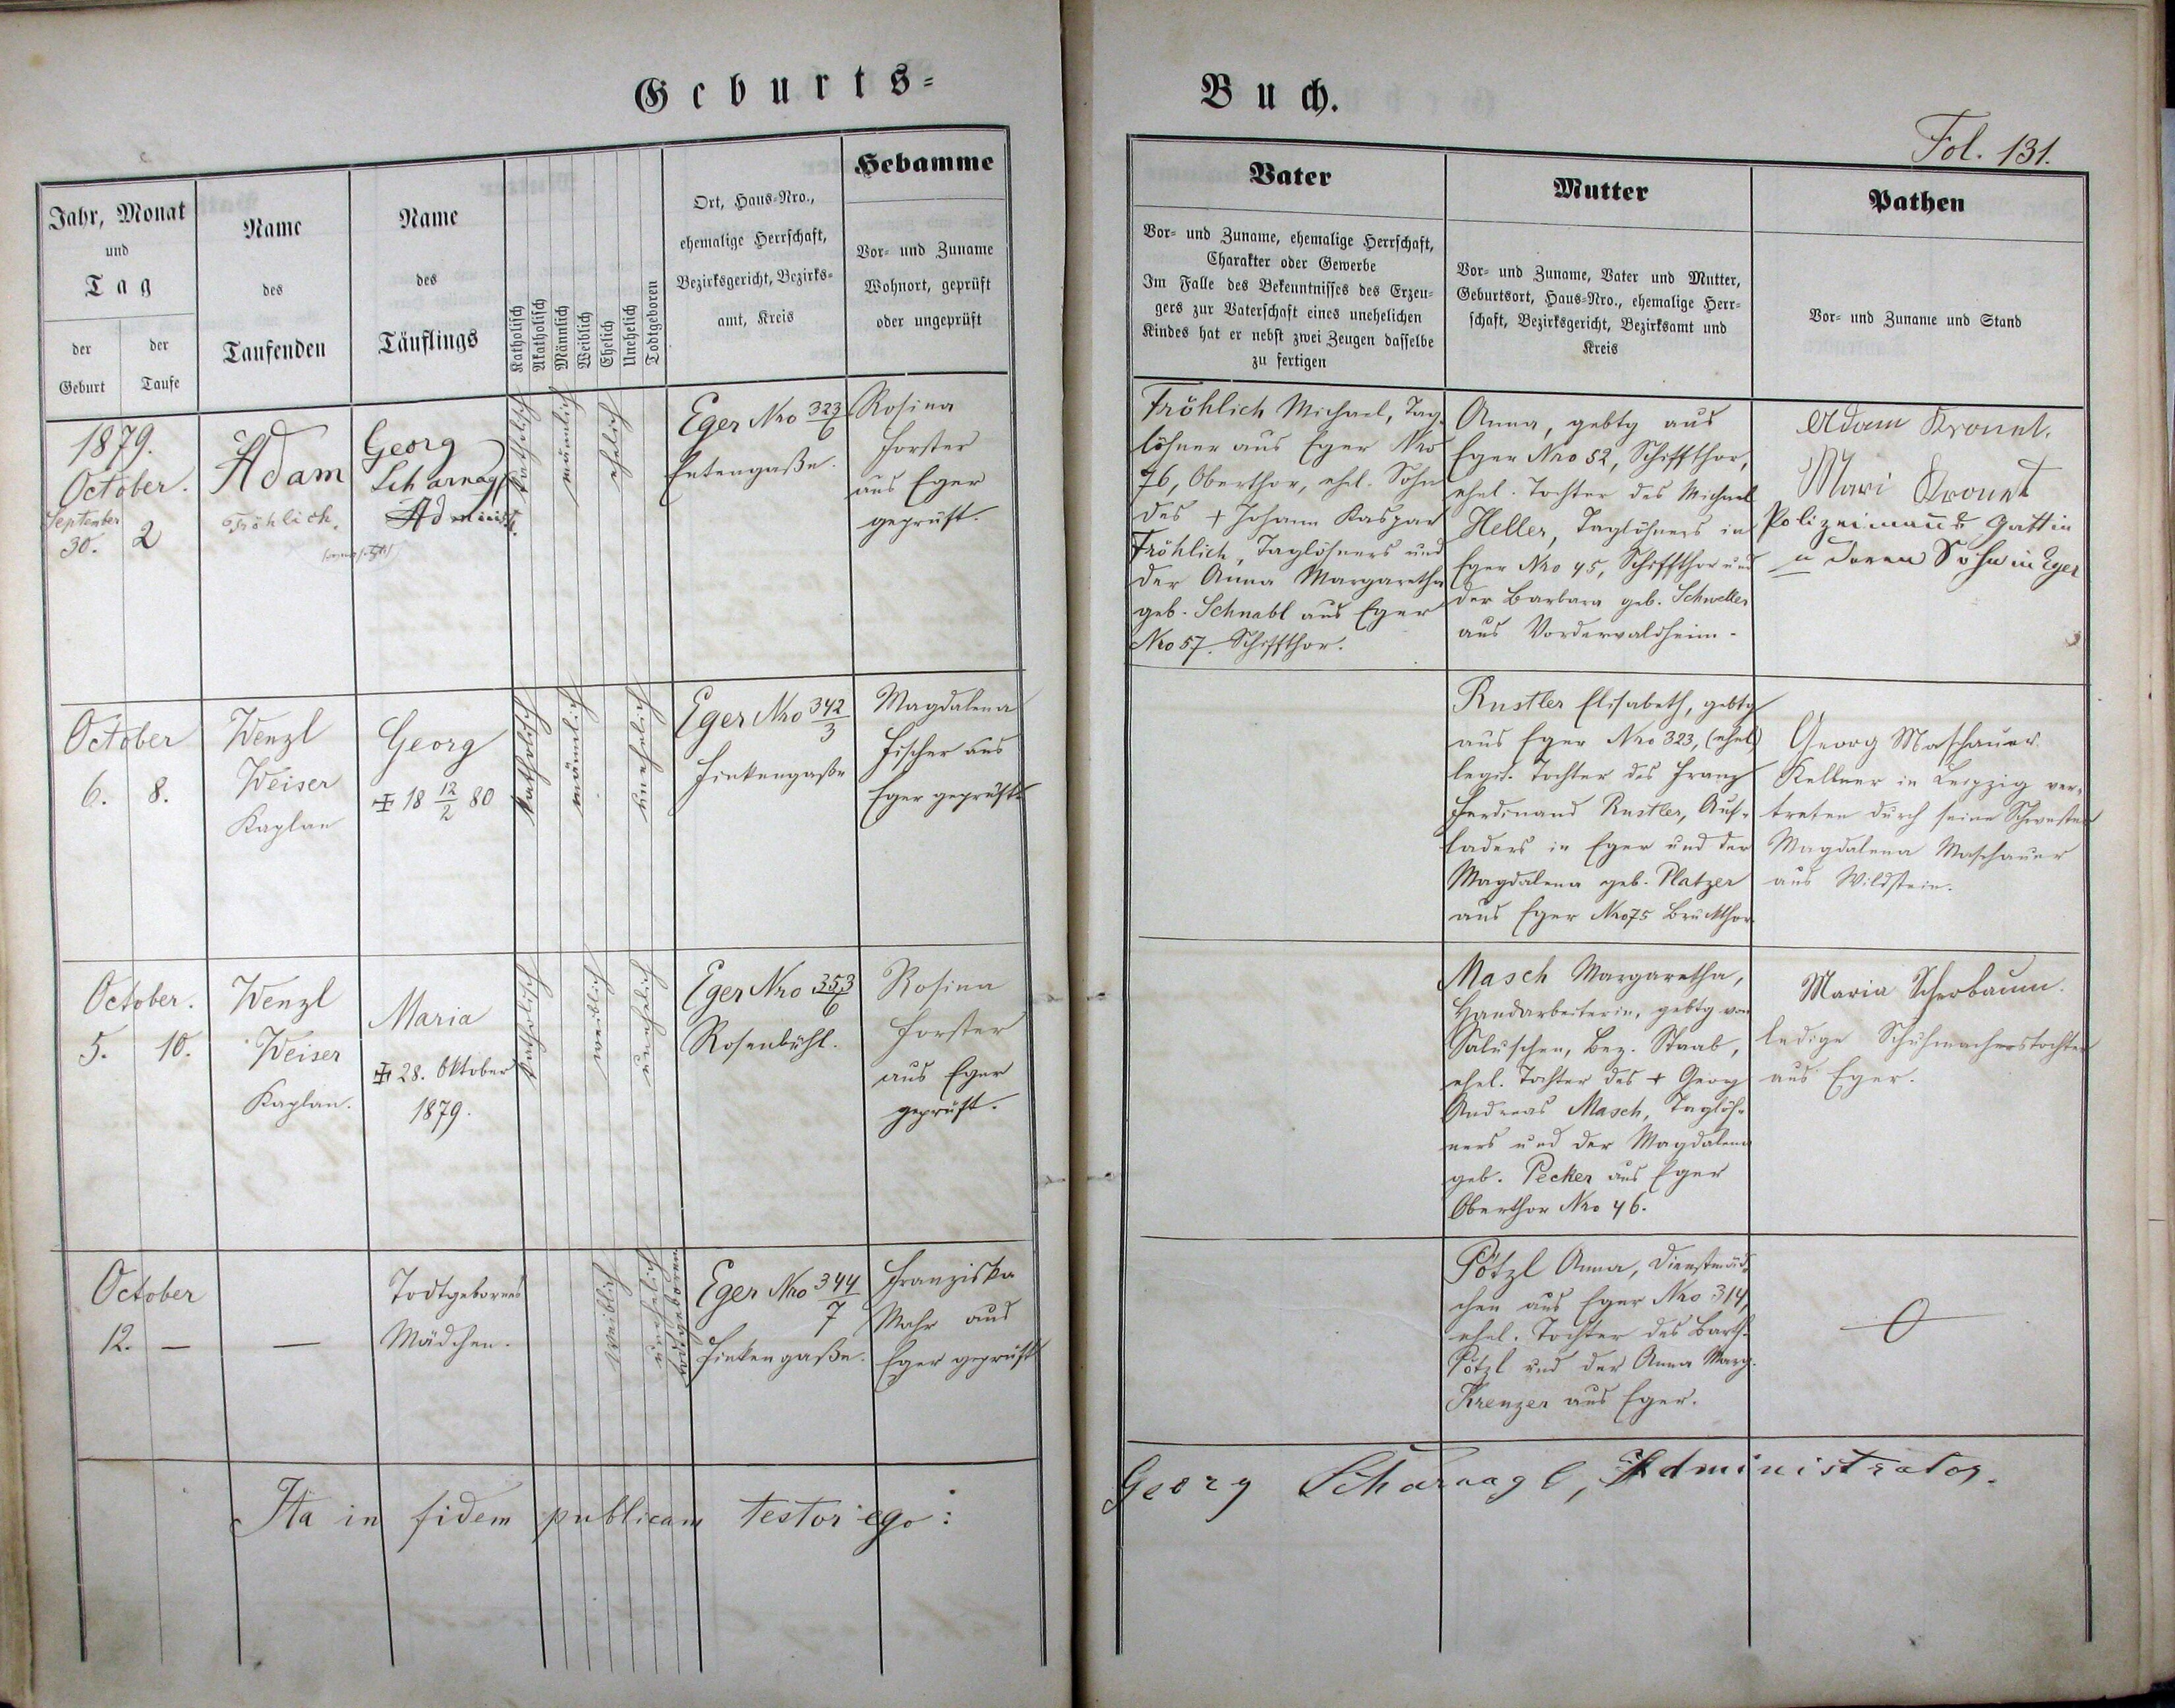 Geburts-
Buch.
Fol. 131.
Jahr, Monat
und
Tag
der
Geburt
der
Taufe
Name
des
Taufenden
Name
des
Täuflings
Katholisch
Akatholisch
Männlich
Weiblich
Ehelich
Unehelich
Todtgeboren
Ort, Haus-Nro.,
ehemalige Herrschaft,
Bezirksgericht, Bezirks-
amt, Kreis
Hebamme
Vor- und Zuname
Wohnort, geprüft
oder ungeprüft
Vater
Vor- und Zuname, ehemalige Herrschaft,
Charakter oder Gewerbe
Im Falle des Bekenntnisses des Erzeu-
gers zur Vaterschaft eines unehelichen
Kindes hat er nebst zwei Zeugen dasselbe
zu fertigen
Mutter
Vor- und Zuname, Vater und Mutter,
Geburtsort, Haus-Nro., ehemalige Herr-
schaft, Bezirksgericht, Bezirksamt und
Kreis
Pathen
Vor- und Zuname und Stand
1879.
October.
September
30.
2
Adam
Fröhlich.
Georg
Scharnagl
Administr.
katholisch
männlich
ehelich
Eger Nro 323/6
Entengaße.
Rosina
Forster
aus Eger
geprüft.
Fröhlich Michael, Tag-
löhner aus Eger Nro
76, Oberthor, ehel. Sohn
des + Johann Kaspar
Fröhlich, Taglöhners und
der Anna Margaretha
geb. Schnabl aus Eger
Nro 57. Schiffthor.
Anna, gebtg aus
Eger Nro 52, Schiffthor,
ehel. Tochter des Michael
Heller, Taglöhners in
Eger Nro 45, Schiffthor und
der Barbara geb. Schneller
aus Vordervaldheim.
Adam Kronet.
Mari Kronet
Polizeimanns Gattin
u deren Sohn in Eger
October
6.
8.
Wenzl
Weiser
Kaplan
Georg
+ 18 12/2 80
katholisch
männlich
unehelich
Eger Nro 342/3
Finkengaße
Magdalena
Fischer aus
Eger geprüft.
Rustler Elisabeth, gebtg
aus Eger Nro 323, (ehel)
legit. Tochter des Franz
Ferdinand Rustler, Auf-
laders in Eger und der
Magdalena geb. Platzer
aus Eger Nro 75 Bruckthor
Georg Maschauer
Kellner in Leipzig ver-
treten durch seine Schwester
Magdalena Maschauer
aus Wildstein.
October.
5.
10.
Wenzl
Weiser
Kaplan.
Maria
+ 28. Oktober
1879.
katholisch
weiblich
unehelich
Eger Nro 353/6
Rosenbühl.
Rosina
Forster
aus Eger
geprüft.
Masch Margaretha,
Handarbeiterin, gebtg von
Saluschen, Bez. Staab,
ehel. Tochter des + Georg
Andreas Masch, Taglöh-
ners und der Magdalena
geb. Pecker aus Eger
Oberthor Nro 46.
Maria Scherbaum.
ledige Schuhmacherstochter
aus Eger.
October
12.
—
—
Todtgebornes
Mädchen.
weiblich
unehelich
todtgeboren
Eger Nro 344/7
Finkengaße.
Franziska
Mahr aus
Eger geprüft
Pötzl Anna, Dienstmäd-
chen aus Eger Nro 314,
ehel. Tochter des Barth.
Pötzl und der Anna Marg.
Krenzer aus Eger.
0
Ita in fidem publicam testor ego:
Georg Scharnagl, Administrator.